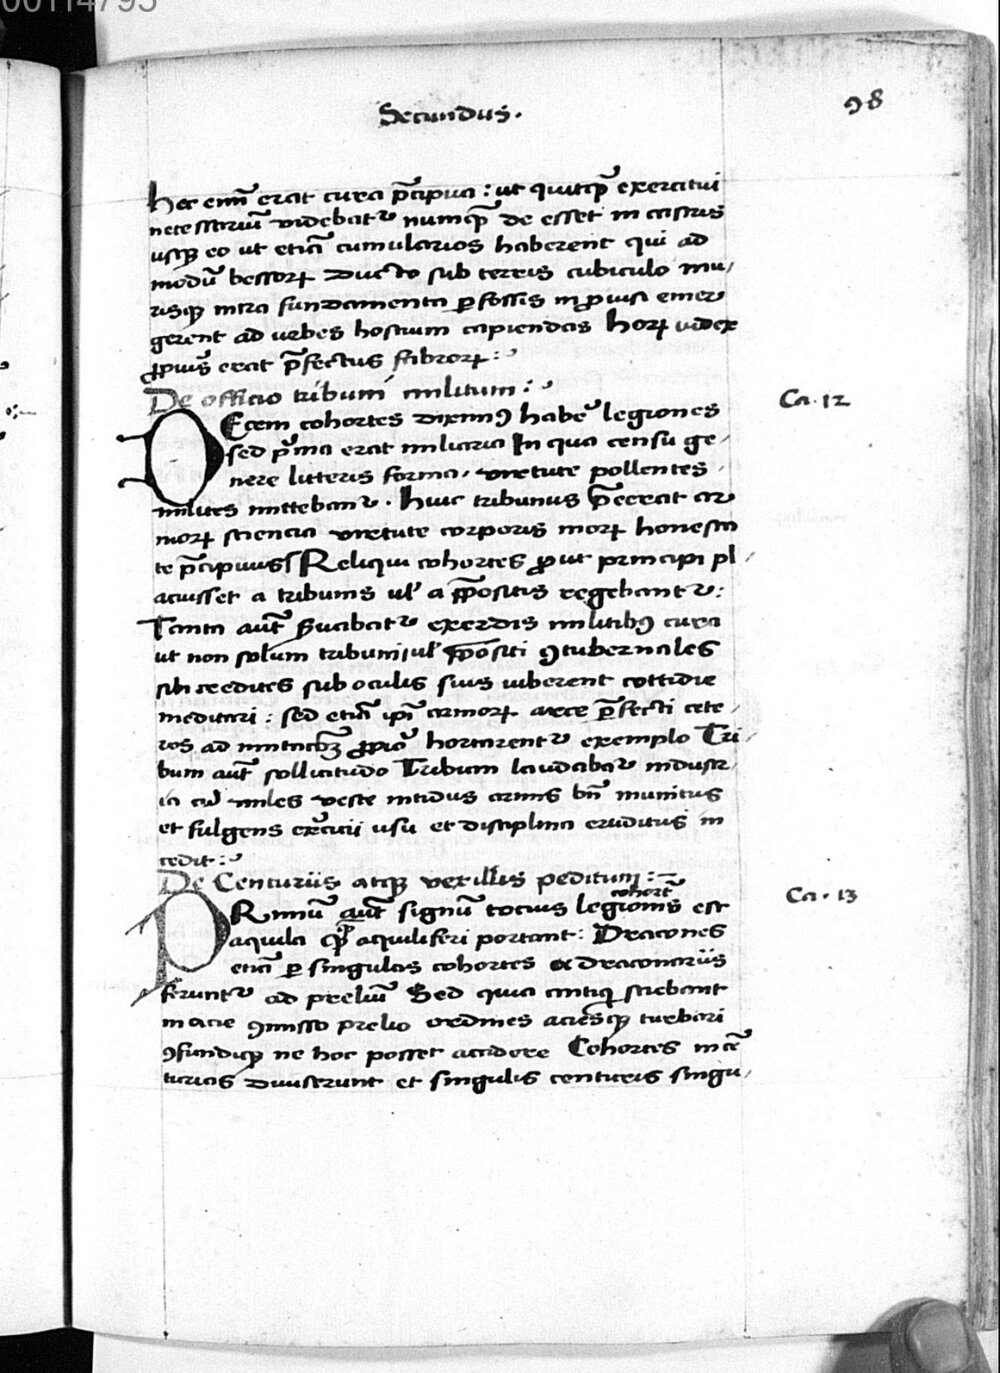 00114795
Secundus.
98
hec em̄ erat cura p̄cipua : ut quicq̄ exercitui
necessariū videbat᷑ numq̄ de esset in castris
usqꝫ eo ut etiā cumularios haberent qui ad
modū bessoꝝ ducto sub terris cubiculo mu/
risqꝫ intra fundamenta ꝑfossis inꝓuisi emer
gerent ad urbes hostium capiendas hoꝝ iudex
ꝓpriꝰ erat p̄fectus fabroꝝ :
De officio tribuni militum :
Ca. 12
DEcem cohortes diximꝰ haberͤ legiones
sed pͥma erat miliaria In qua censu ge/
nere litteris forma, virtute pollentes
milites mittebant᷑. huic tribunus p̄eerat ar
moꝝ sciencia virtute corporis moꝝ honesta
te p̄cipuus Reliqui cohortes ꝓut principi pl/
acuisset a tribunis ul̓ a p̄positis regebant᷑ :
Tanta aūt ẜuabat᷑ exercendis militibꝰ cura
ut non solum tribuni ul̓ p̄positi ꝯtubernales
sibi creditos sub oculis suis iuberent cottidie
meditari : sed etiā ip̄i armoꝝ arte ꝑfecti cete/
ros ad imitacōꝫ ꝓpriā hortarent᷑ exemplo Tri/
buni aūt sollicitudo Tribuni laudabat᷑ industr/
ia cū miles veste nitidus armis bn̄ munitus
et fulgens exͤrcicii usu et disciplina eruditus in
cedit :
De Centuriis atqꝫ vexillis peditum :
Ca. 13
cohort̄
PRimū aūt signū tocius legionis est
aquila q̄ aquiliferi portant : Dracones
etiā ꝑ singulas cohortes a draconariis
ferunt᷑ ad preliū Sed quia antiqͥ sciebant
in acie ꝯmisso prelio ordines aciesqꝫ turbari
ꝯfundiqꝫ ne hoc posset accidere Cohortes in cē
turias diuiserunt et singulis centuriis singu/